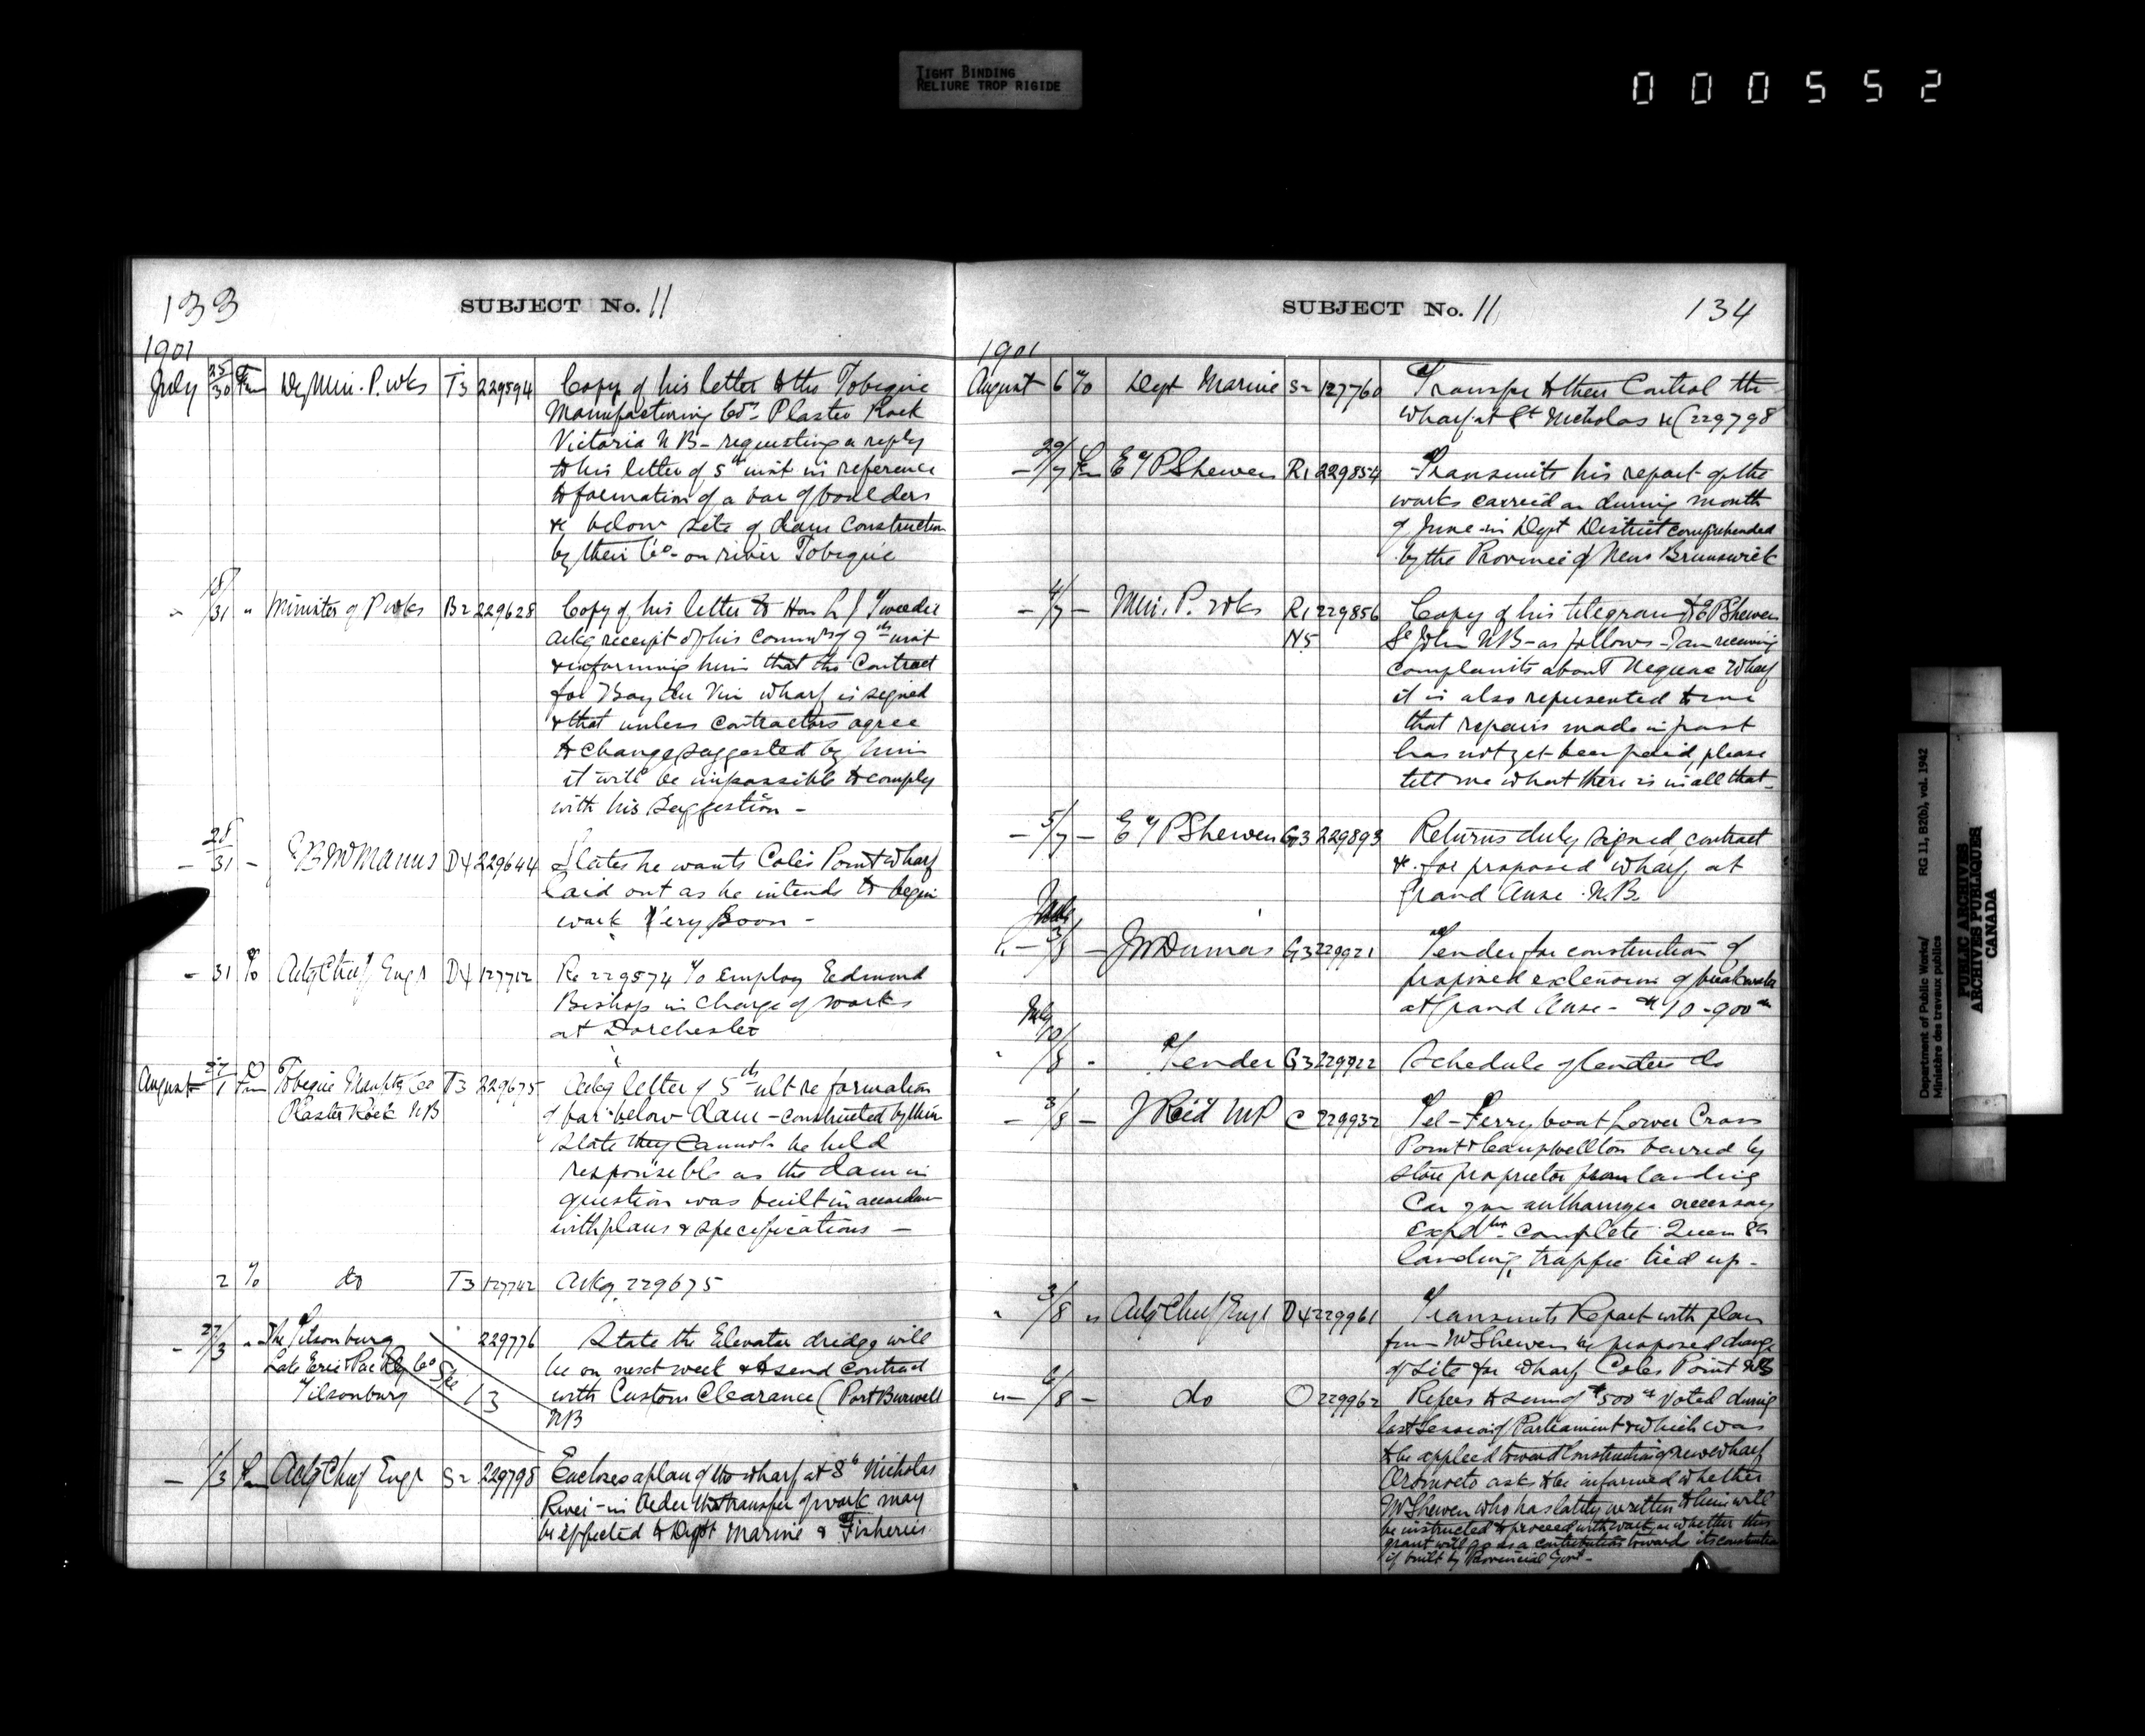 TIGHT BINDING
RELIURE TROP RIGIDE
000552
133
SUBJECT No. 11
1901
July 25/30 Fm Dy Min. P. wks T3 229594 Copy of his letter to the Tobique
Manufacturing Co Plaster Rock
Victoria N B - requesting a reply
to his letter of 5th inst in reference
to formation of a bar of boulders
&c below site of dam construction
by their Co - on river Tobique
- 18/31 " Minister of P wks B2 229628 Copy of his letter to Hon L J Tweedie
ackg receipt of his commn of 9th inst
& informing him that the Contract
for Bay du Vin wharf is signed
& that unless contractors agree
to change suggested by him
it will be impossible to comply
with his suggestion -
- 28/31 - McManus D4 229644 States he wants Coles Point wharf
laid out as he intends to begin
work very soon -
- 31 To Actg Chief Engr D4 127712 Re 229574 To employ Edmond
Bishop in charge of works
at Dorchester
August 27/1 Fm Tobique Manftg Co T3 229675 Ackg letter of 5th ult re formation
Plaster Rock NB of bar below dam - constructed by them
State they cannot be held
responsible as the dam in
question was built in accordance
with plans & specifications -
2 To do T3 127742 Ackg 229675
- 27/3 " The Tilsonburg 229776 State the Elevator dredge will
Lake Erie & Pac Rly Co be on next week & to send contract
Tilsonburg 13 with Custom Clearance (Port Burwell
NB
- 1/3 Fm Actg Chief Engr S2 229798 Encloses a plan of the wharf at St Nicholas
River - in order the transfer of work may
be effected to Dept Marine & Fisheries
SUBJECT No. 11
134
1901
August 6 To Dept Marine S2 127760 Transfer to their Control the
wharf at St Nicholas &c (229798
- 29/7 Fm E T P Shewen R1 229854 Transmits his report of the
works carried on during month
of June in Dept District comprehended
by the Province of New Brunswick
- 4/7 - Min. P. wks R1 229856 Copy of his telegram to E P Shewen
N5 St John NB - as follows - I am receiving
complaints about Neguac Wharf
it is also represented to me
that repairs made in past
has not yet been paid please
tell me what there is in all that -
- 5/7 - E T P Shewen G3 229893 Returns duly signed contract
&c for proposed wharf at
Grand Anse N.B.
" - 3/8 - J Dumas G3 229921 Tender for construction of
proposed extension of breakwater
at Grand Anse - $10-900
July
10/8 - Tender G3 229922 Schedule of tenders do
- 3/8 - J Reid MP C 229932 Tel - Ferry boat Lower Cross
Point & Campbellton barred by
store proprietor from landing
Can you authorize necessary
Expdtre complete Queen St
landing, traffic tied up -
" 3/8 " Actg Chief Engr D4 229961 Transmits Report with plan
from Mr Shewen re proposed change
of site for wharf Coles Point NB
" - 6/8 - do O 229962 Refers to sum of $500 voted during
last Session of Parliament & which was
to be applied toward Construction of new wharf
Oromocto asks to be informed whether
Mr Shewen who has lately written to him will
be instructed to proceed with work or whether this
grant will go as a contribution towards its construction
if built by Provincial Govt -
Department of Public Works/ RG 11, B2(b), vol. 1942
Ministère des travaux publics
PUBLIC ARCHIVES
ARCHIVES PUBLIQUES
CANADA